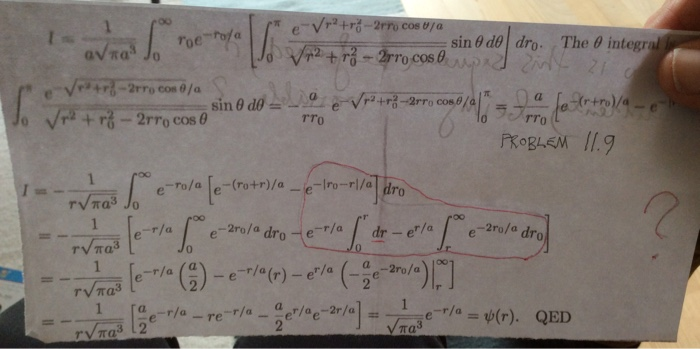 I = \frac{1}{a\sqrt{\pi a^3}} \int_0^\infty r_0 e^{-r_0/a} \left[ \int_0^\pi \frac{e^{-\sqrt{r^2+r_0^2-2rr_0\cos\theta}/a}}{\sqrt{r^2+r_0^2-2rr_0\cos\theta}} \sin\theta \, d\theta \right] dr_0. The θ integral is
\int_0^\pi \frac{e^{-\sqrt{r^2+r_0^2-2rr_0\cos\theta}/a}}{\sqrt{r^2+r_0^2-2rr_0\cos\theta}} \sin\theta \, d\theta = -\frac{a}{rr_0} e^{-\sqrt{r^2+r_0^2-2rr_0\cos\theta}/a} \Big|_0^\pi = -\frac{a}{rr_0} [e^{-(r+r_0)/a} - e^{-
PROBLEM 11.9
I = -\frac{1}{r\sqrt{\pi a^3}} \int_0^\infty e^{-r_0/a} \left[ e^{-(r_0+r)/a} - e^{-|r_0-r|/a} \right] dr_0
= -\frac{1}{r\sqrt{\pi a^3}} \left[ e^{-r/a} \int_0^\infty e^{-2r_0/a} \, dr_0 - e^{-r/a} \int_0^r dr - e^{r/a} \int_r^\infty e^{-2r_0/a} \, dr_0 \right] ?
= -\frac{1}{r\sqrt{\pi a^3}} \left[ e^{-r/a} \left( \frac{a}{2} \right) - e^{-r/a}(r) - e^{r/a} \left( -\frac{a}{2} e^{-2r_0/a} \right) \Big|_r^\infty \right]
= -\frac{1}{r\sqrt{\pi a^3}} \left[ \frac{a}{2} e^{-r/a} - re^{-r/a} - \frac{a}{2} e^{r/a} e^{-2r/a} \right] = \frac{1}{\sqrt{\pi a^3}} e^{-r/a} = ψ(r). QED